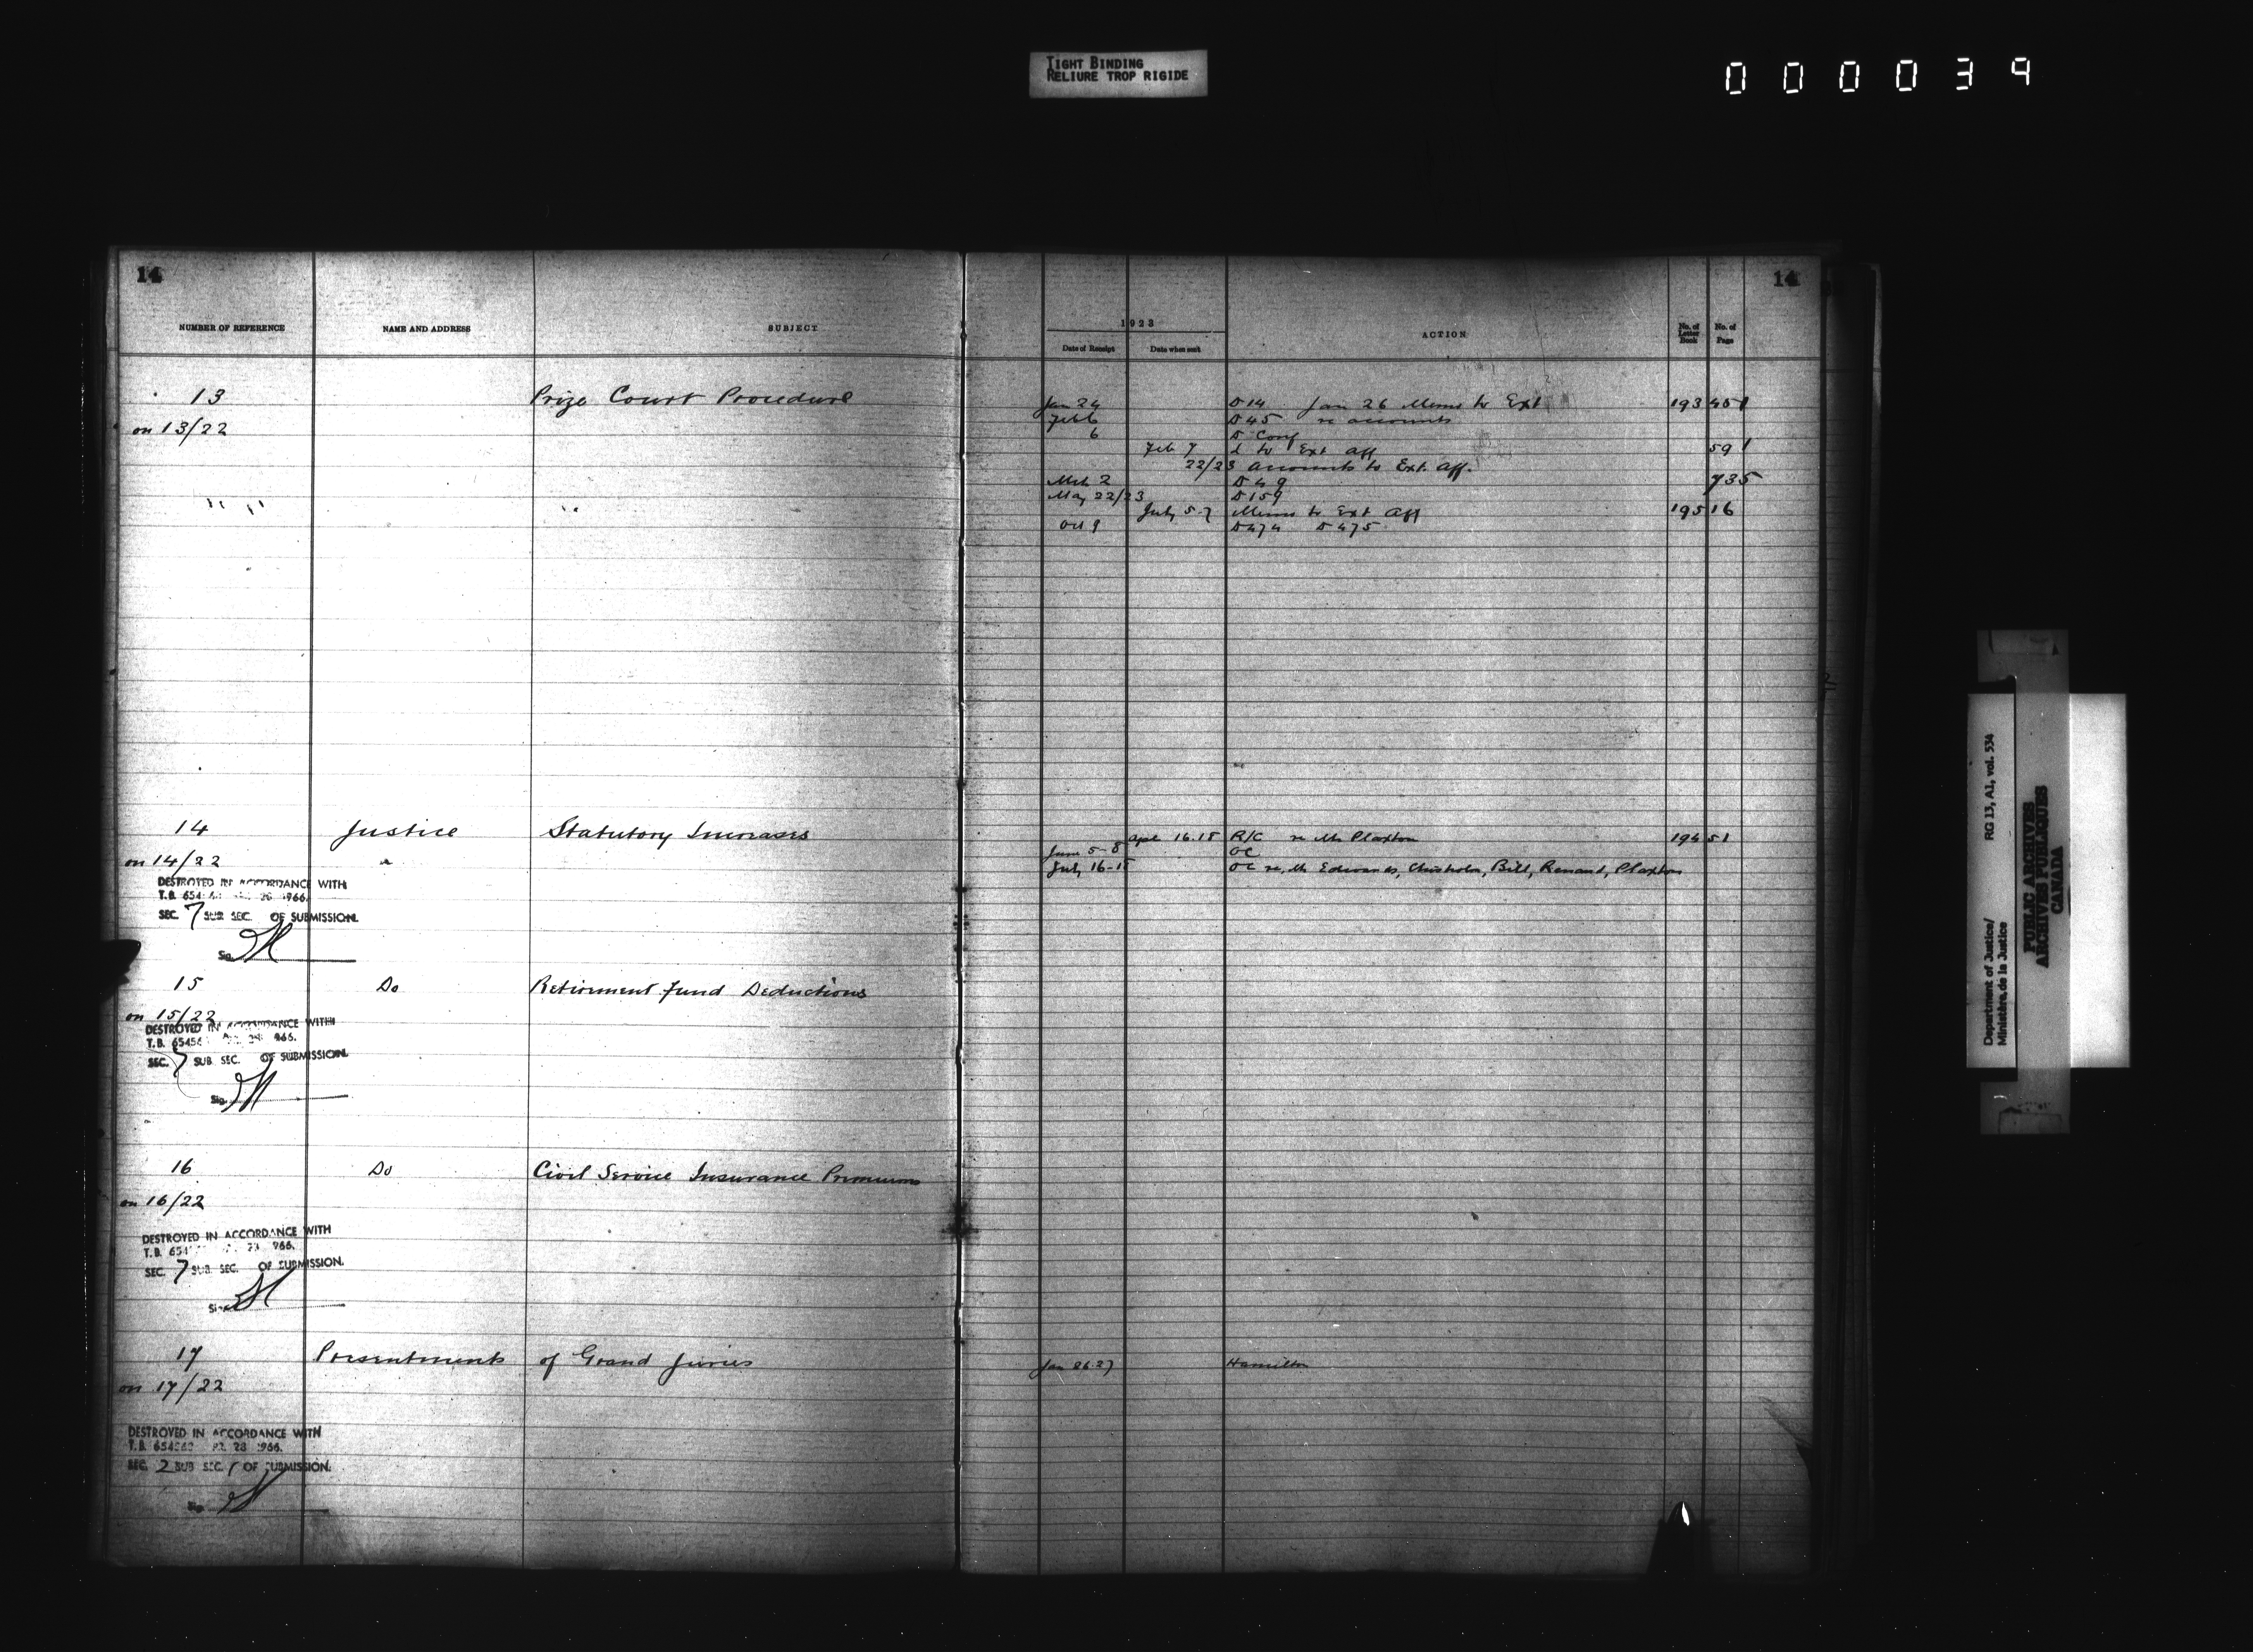 TIGHT BINDING
RELIURE TROP RIGIDE
000039
14 14
NUMBER OF REFERENCE NAME AND ADDRESS SUBJECT 1923 Date of Receipt Date when sent ACTION No. of Letter Book No. of Page
13 Prize Court Procedure Jan 24 D 14 Jan 26 Memo to Ext 193 451
on 13/22 Feb 6 D 45 re accounts
6 D Conf
Feb 7 L to Ext Aff 591
22/23 accounts to Ext. Aff.
Mch 2 D 49 735
" " " May 22/23 D 159
July 5-7 Memo to Ext Aff 195 16
Oct 9 D 474 D 475
14 Justice Statutory Increases Apl 16.18 R/C re Mr Plaxton 194 51
on 14/22 June 5-8 OC
July 16-18 OC re Mr Edwards, Chisholm, Bill, Renaud, Plaxton
DESTROYED IN ACCORDANCE WITH
T.B. 654 1966.
SEC. 7 SUB SEC. OF SUBMISSION.
Sig.
15 Do Retirement Fund Deductions
on 15/22
DESTROYED IN ACCORDANCE WITH
T.B. 6545 966.
SEC. 7 SUB SEC. OF SUBMISSION.
Sig.
16 Do Civil Service Insurance Premiums
on 16/22
DESTROYED IN ACCORDANCE WITH
T.B. 654 966.
SEC. 7 SUB. SEC. OF SUBMISSION.
Sig.
17 Presentments of Grand Juries Jan 26.27 Hamilton
on 17/22
DESTROYED IN ACCORDANCE WITH
T.B. 654563 28 1966.
SEC. 2 SUB SEC. 1 OF SUBMISSION.
Sig.
Department of Justice/ RG 13, A1, vol. 534
Ministère de la Justice
PUBLIC ARCHIVES
ARCHIVES PUBLIQUES
CANADA